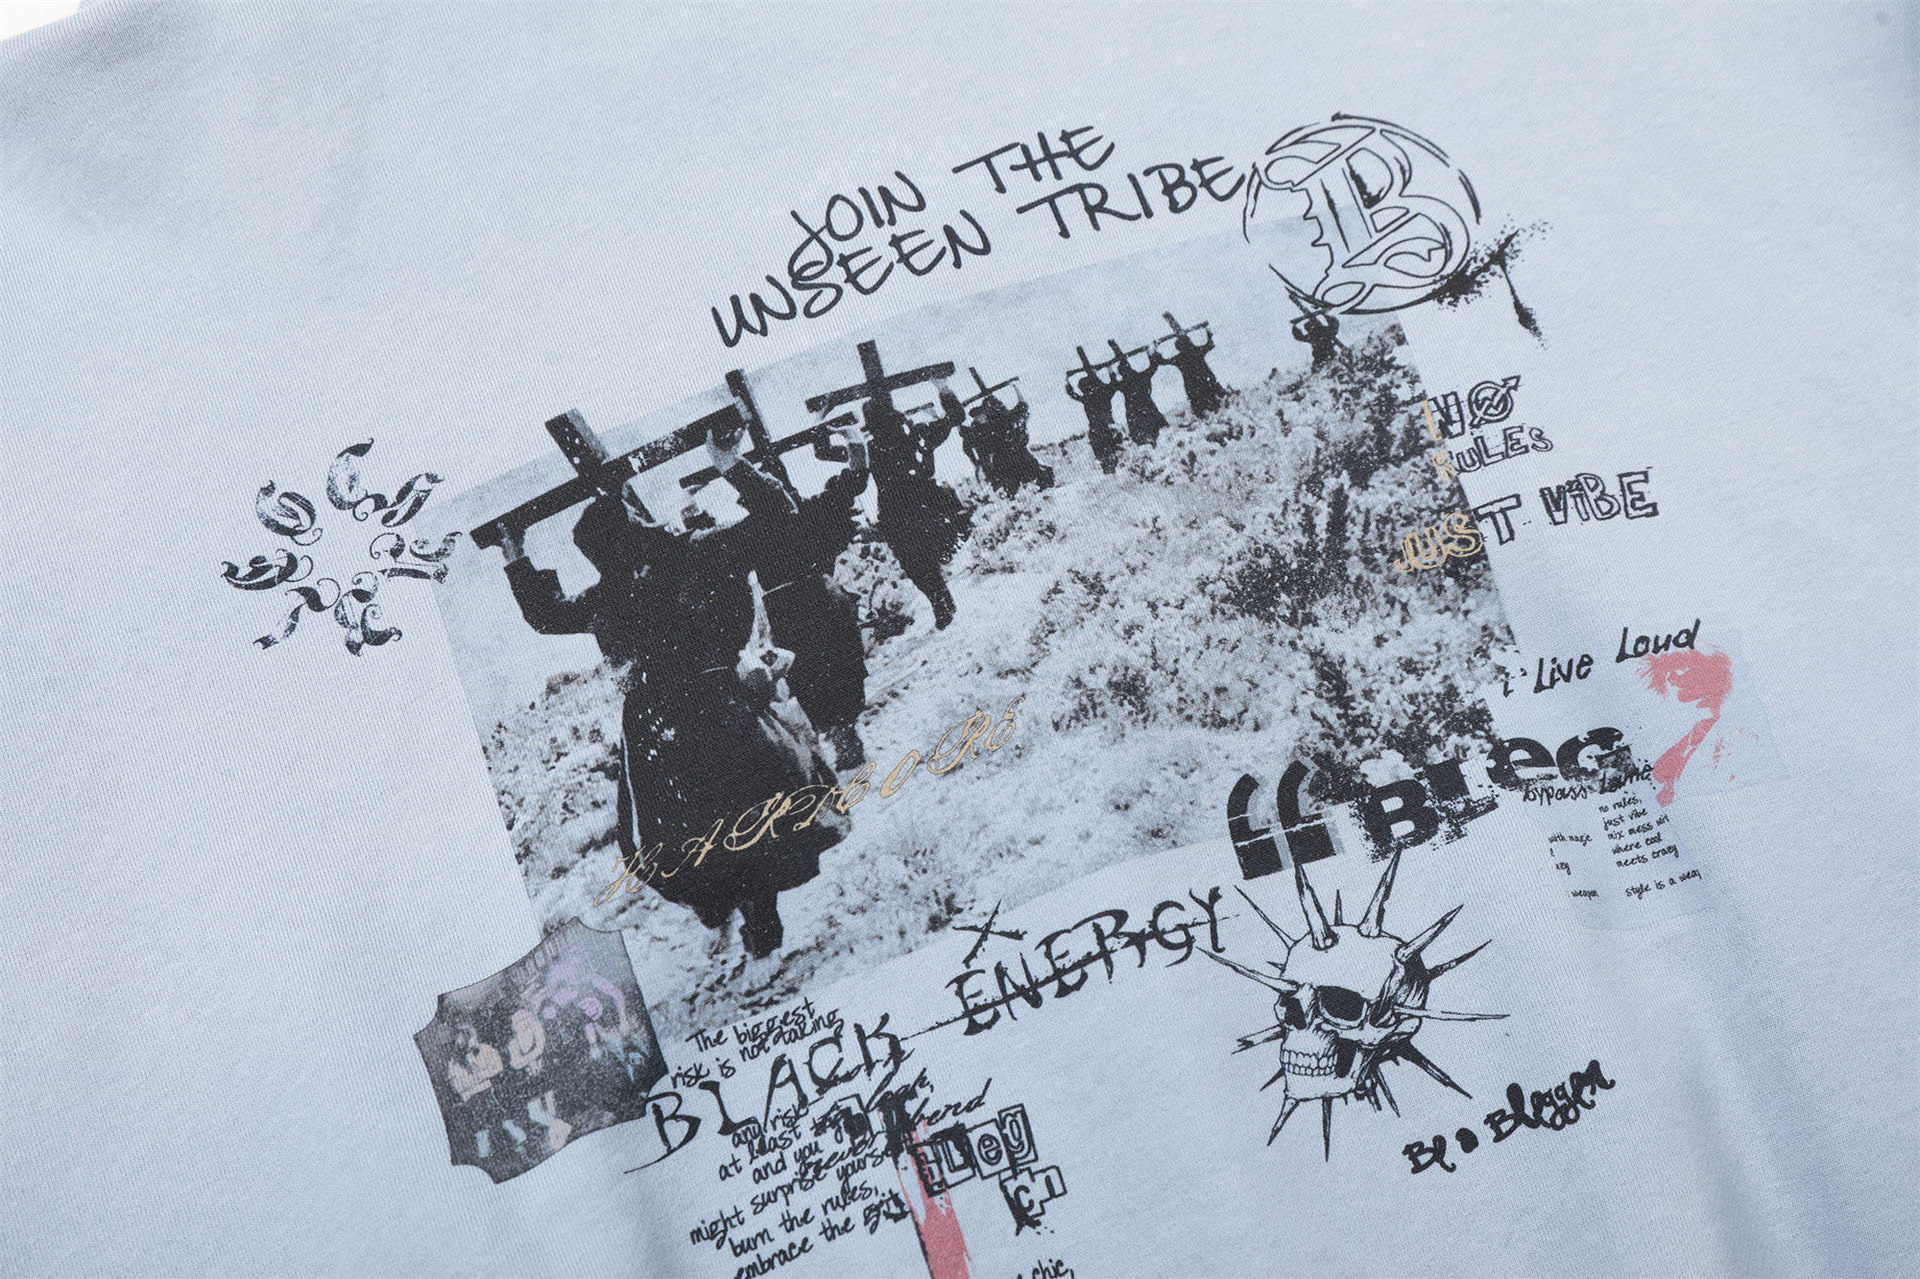 JOIN THE
UNSEEN TRIBE
B
NO
RULES
JUST VIBE
i Live Loud
HARDCORE
“BLEG
bypass Lame
no rules,
just vibe
mix mess wit
where cool
meets crazy
style is a weap
with mage
weapon
X
BLACK ENERGY
The biggest
risk is not taking
any risk
at least
and you
might surprise yourse
burn the rules,
embrace the grit
BLeg
ch
Be a Blegger
chic,